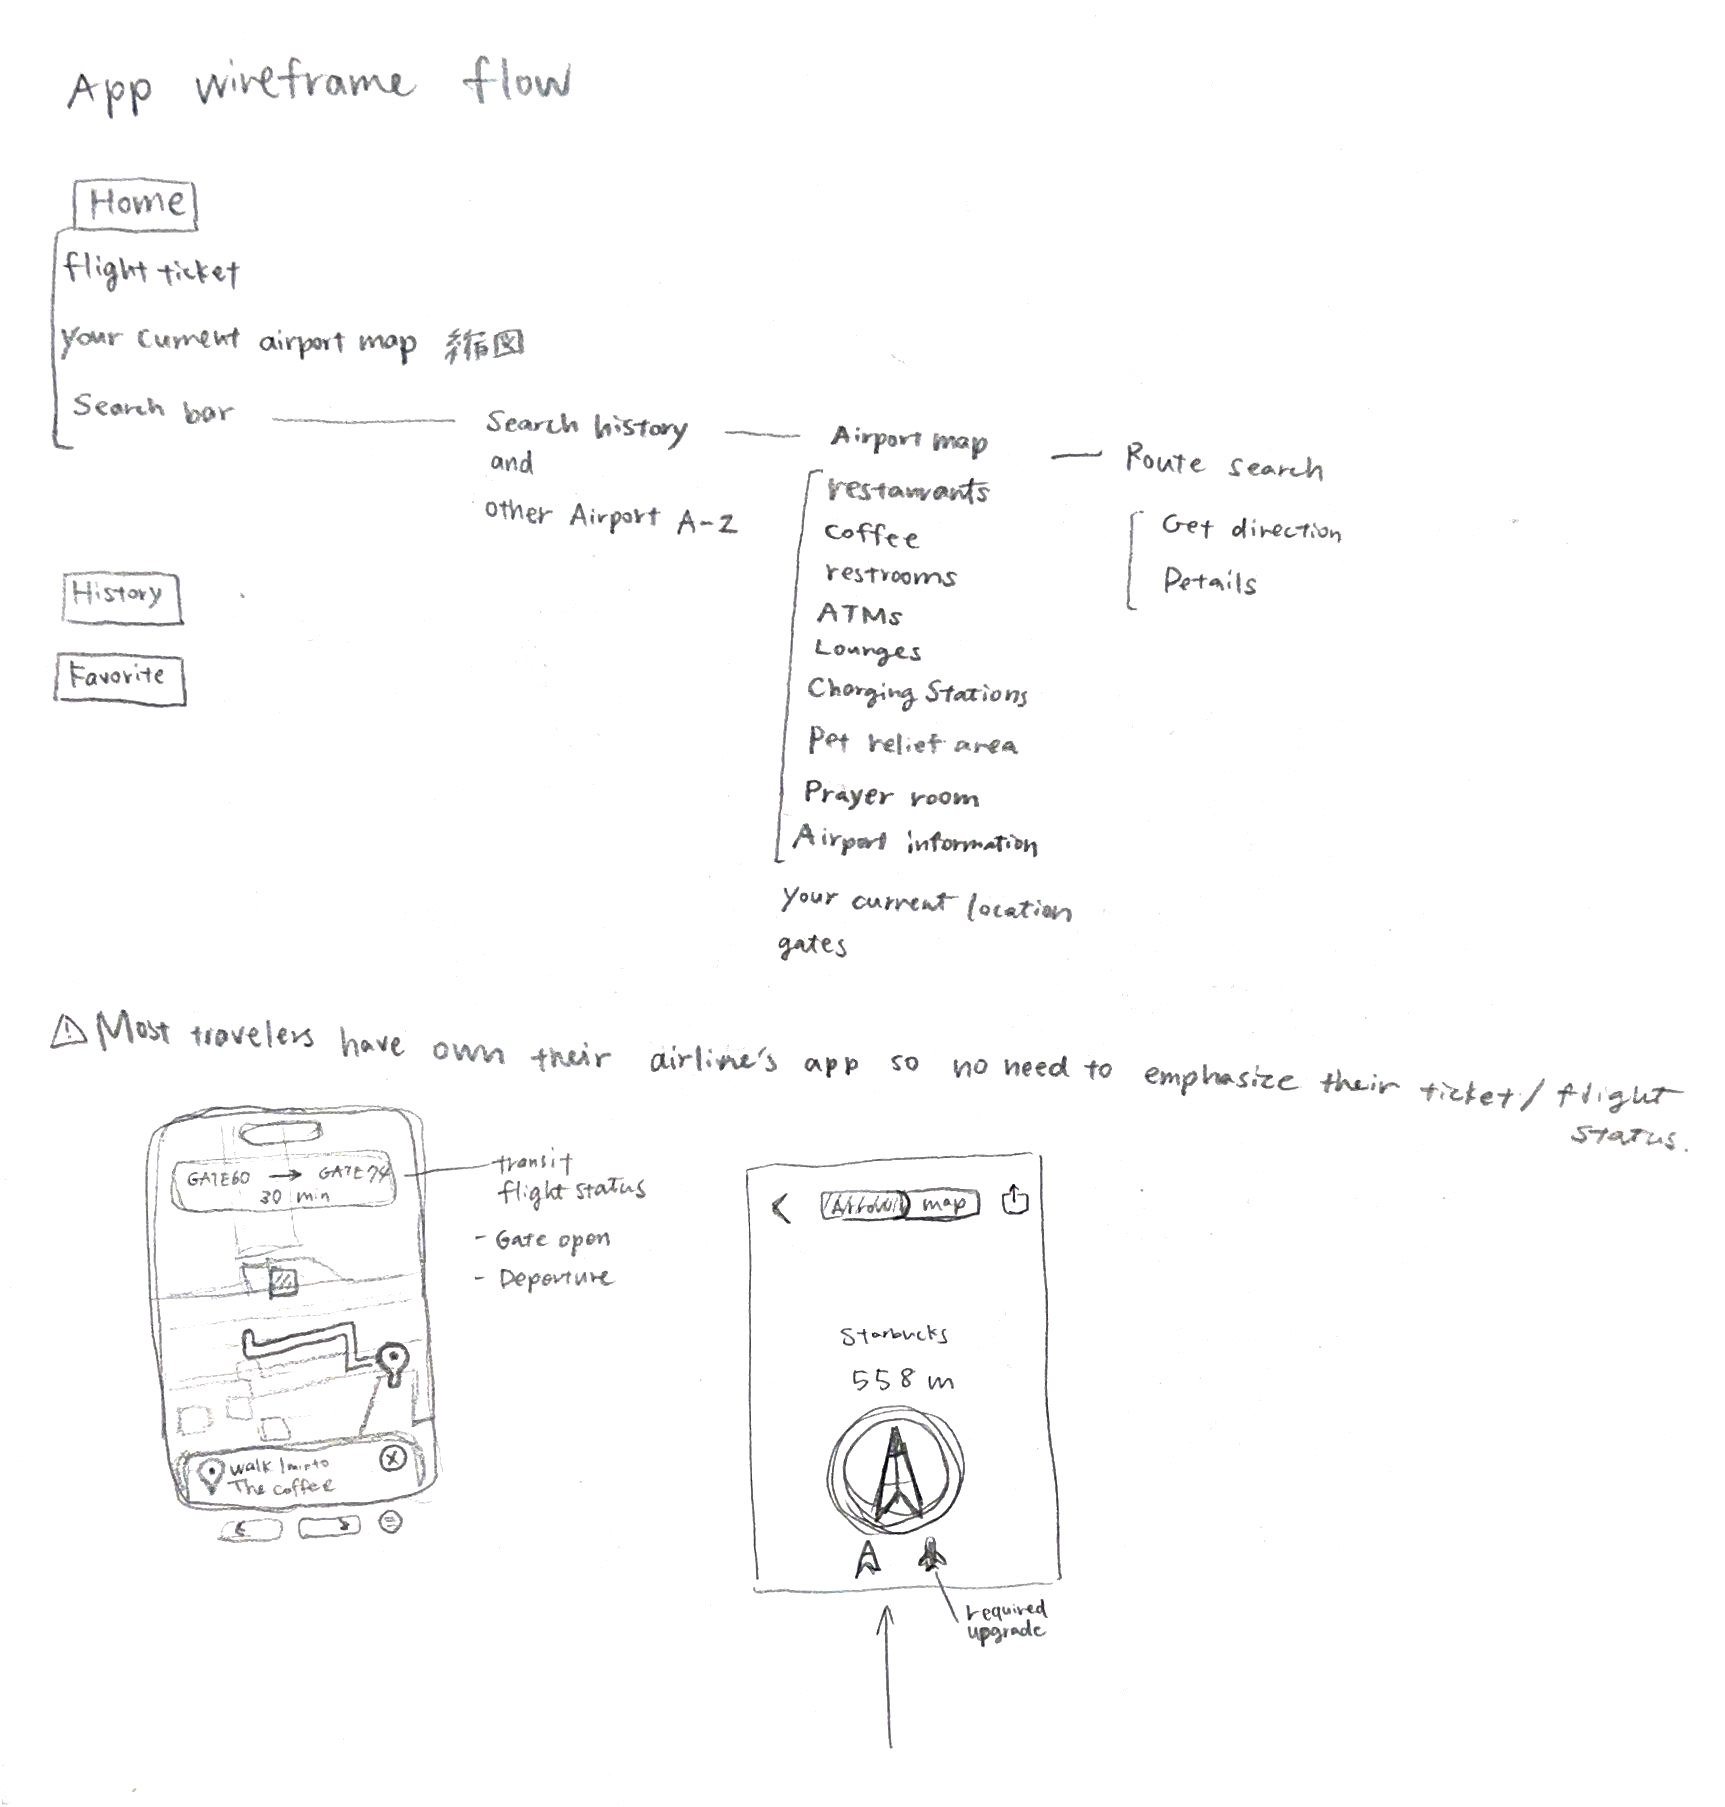 App wireframe flow
Home
flight ticket
your current airport map 縮図
Search bar
Search history
and
other Airport A-Z
Airport map
restaurants
coffee
restrooms
ATMs
Lounges
Charging Stations
Pet relief area
Prayer room
Airport information
your current location
gates
Route search
Get direction
Details
History
Favorite
Most travelers have own their airline's app so no need to emphasize their ticket/flight
status.
GATE60 → GATE74
30 min
transit
flight status
- Gate open
- Departure
walk 1min to
The coffee
Arrow map
Starbucks
558 m
required
upgrade